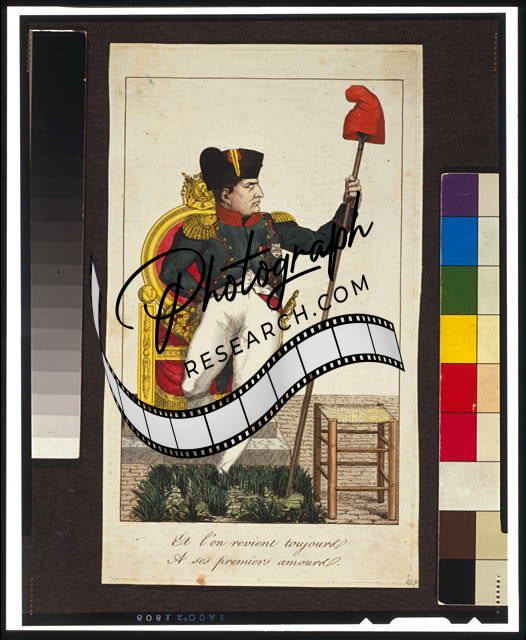 Photograph
RESEARCH.COM
Et l'on revient toujours
A ses premiers amours.